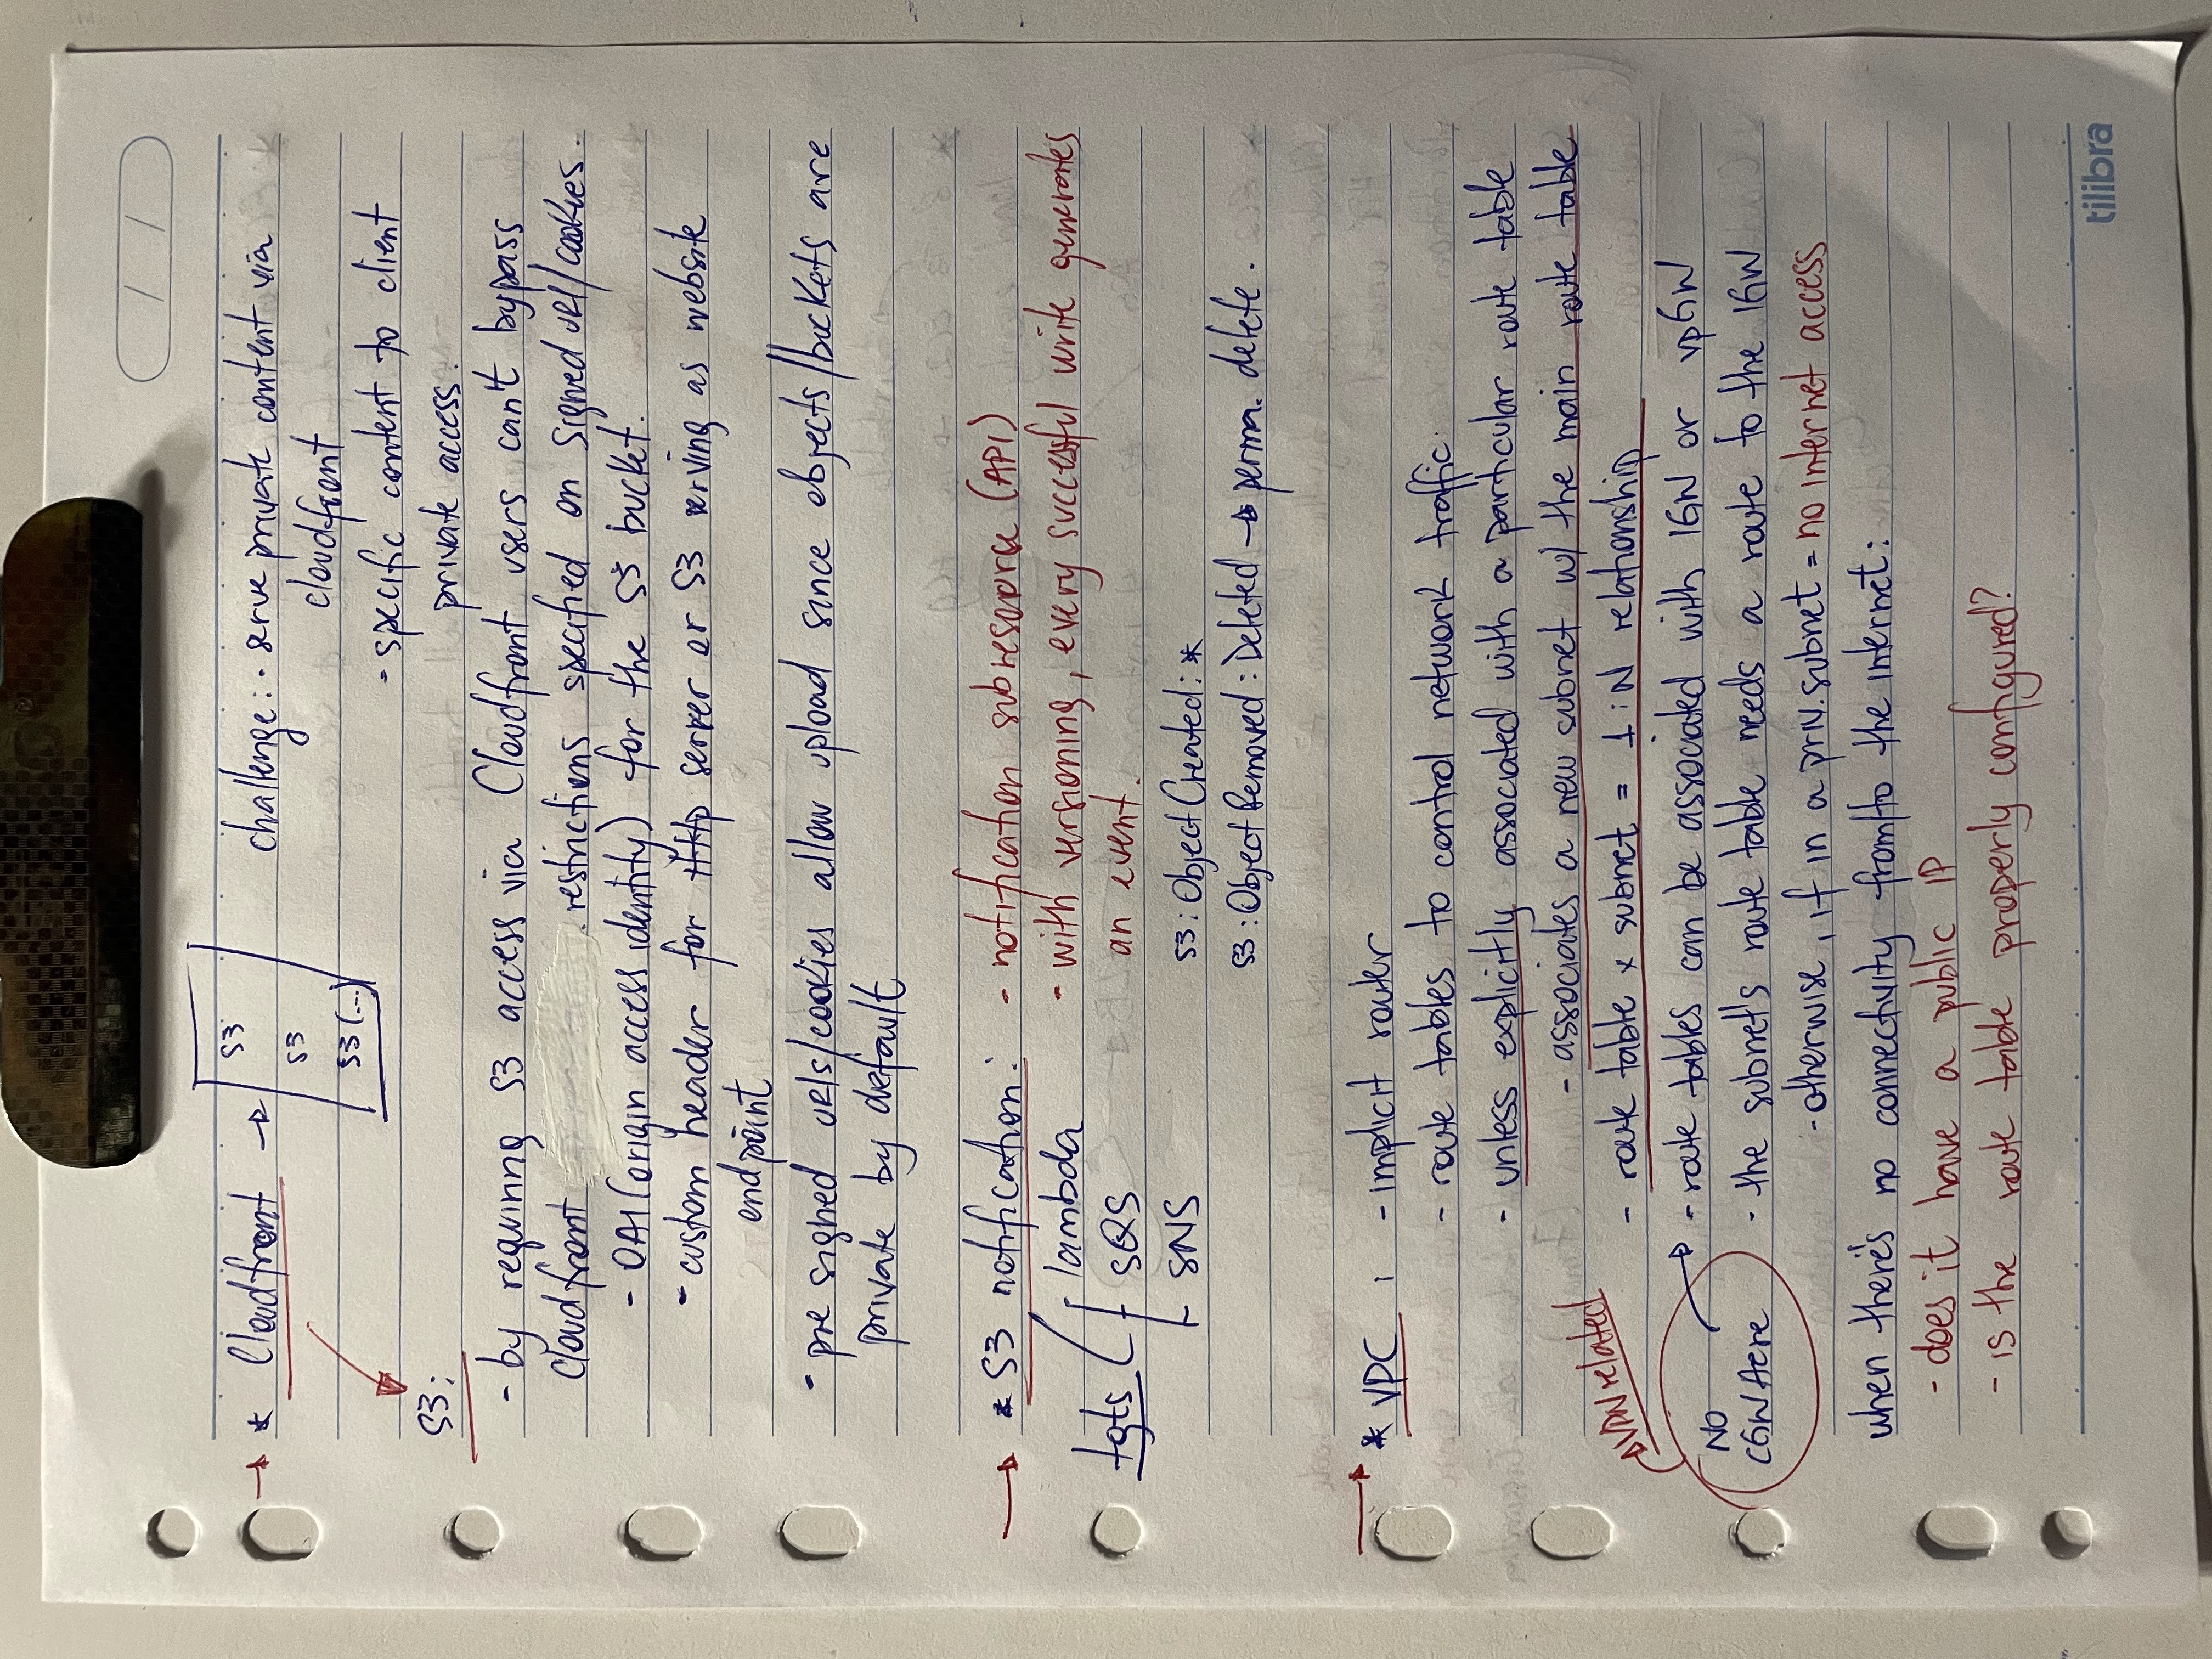 * Cloudfront → S3
S3
S3 (...)
challenge: - serve private content via
cloudfront
- specific content to client
private access.
S3:
- by requiring S3 access via Cloudfront users can't bypass
Cloudfront restrictions specified on signed url/cookies.
- OAI (origin access identity) for the S3 bucket.
- custom header for Http server or S3 serving as website
endpoint
- pre signed urls/cookies allow upload since objects/buckets are
private by default
* S3 notification: - notification subresource (API)
lambda - with versioning, every successful write generates
tgts SQS an event.
SNS S3:ObjectCreated:*
S3:ObjectRemoved:Deleted → perma. delete.
* VPC : - implicit router
- route tables to control network traffic.
- unless explicitly associated with a particular route table
- associates a new subnet w/ the main route table
VPN related
- route table x subnet = 1:N relationship
NO → - route tables can be associated with IGW or vpGW
CGW Here - the subnet's route table needs a route to the IGW
- otherwise, if in a priv. subnet = no internet access
when there's no connectivity from/to the internet:
- does it have a public IP
- is the route table properly configured?
tilibra